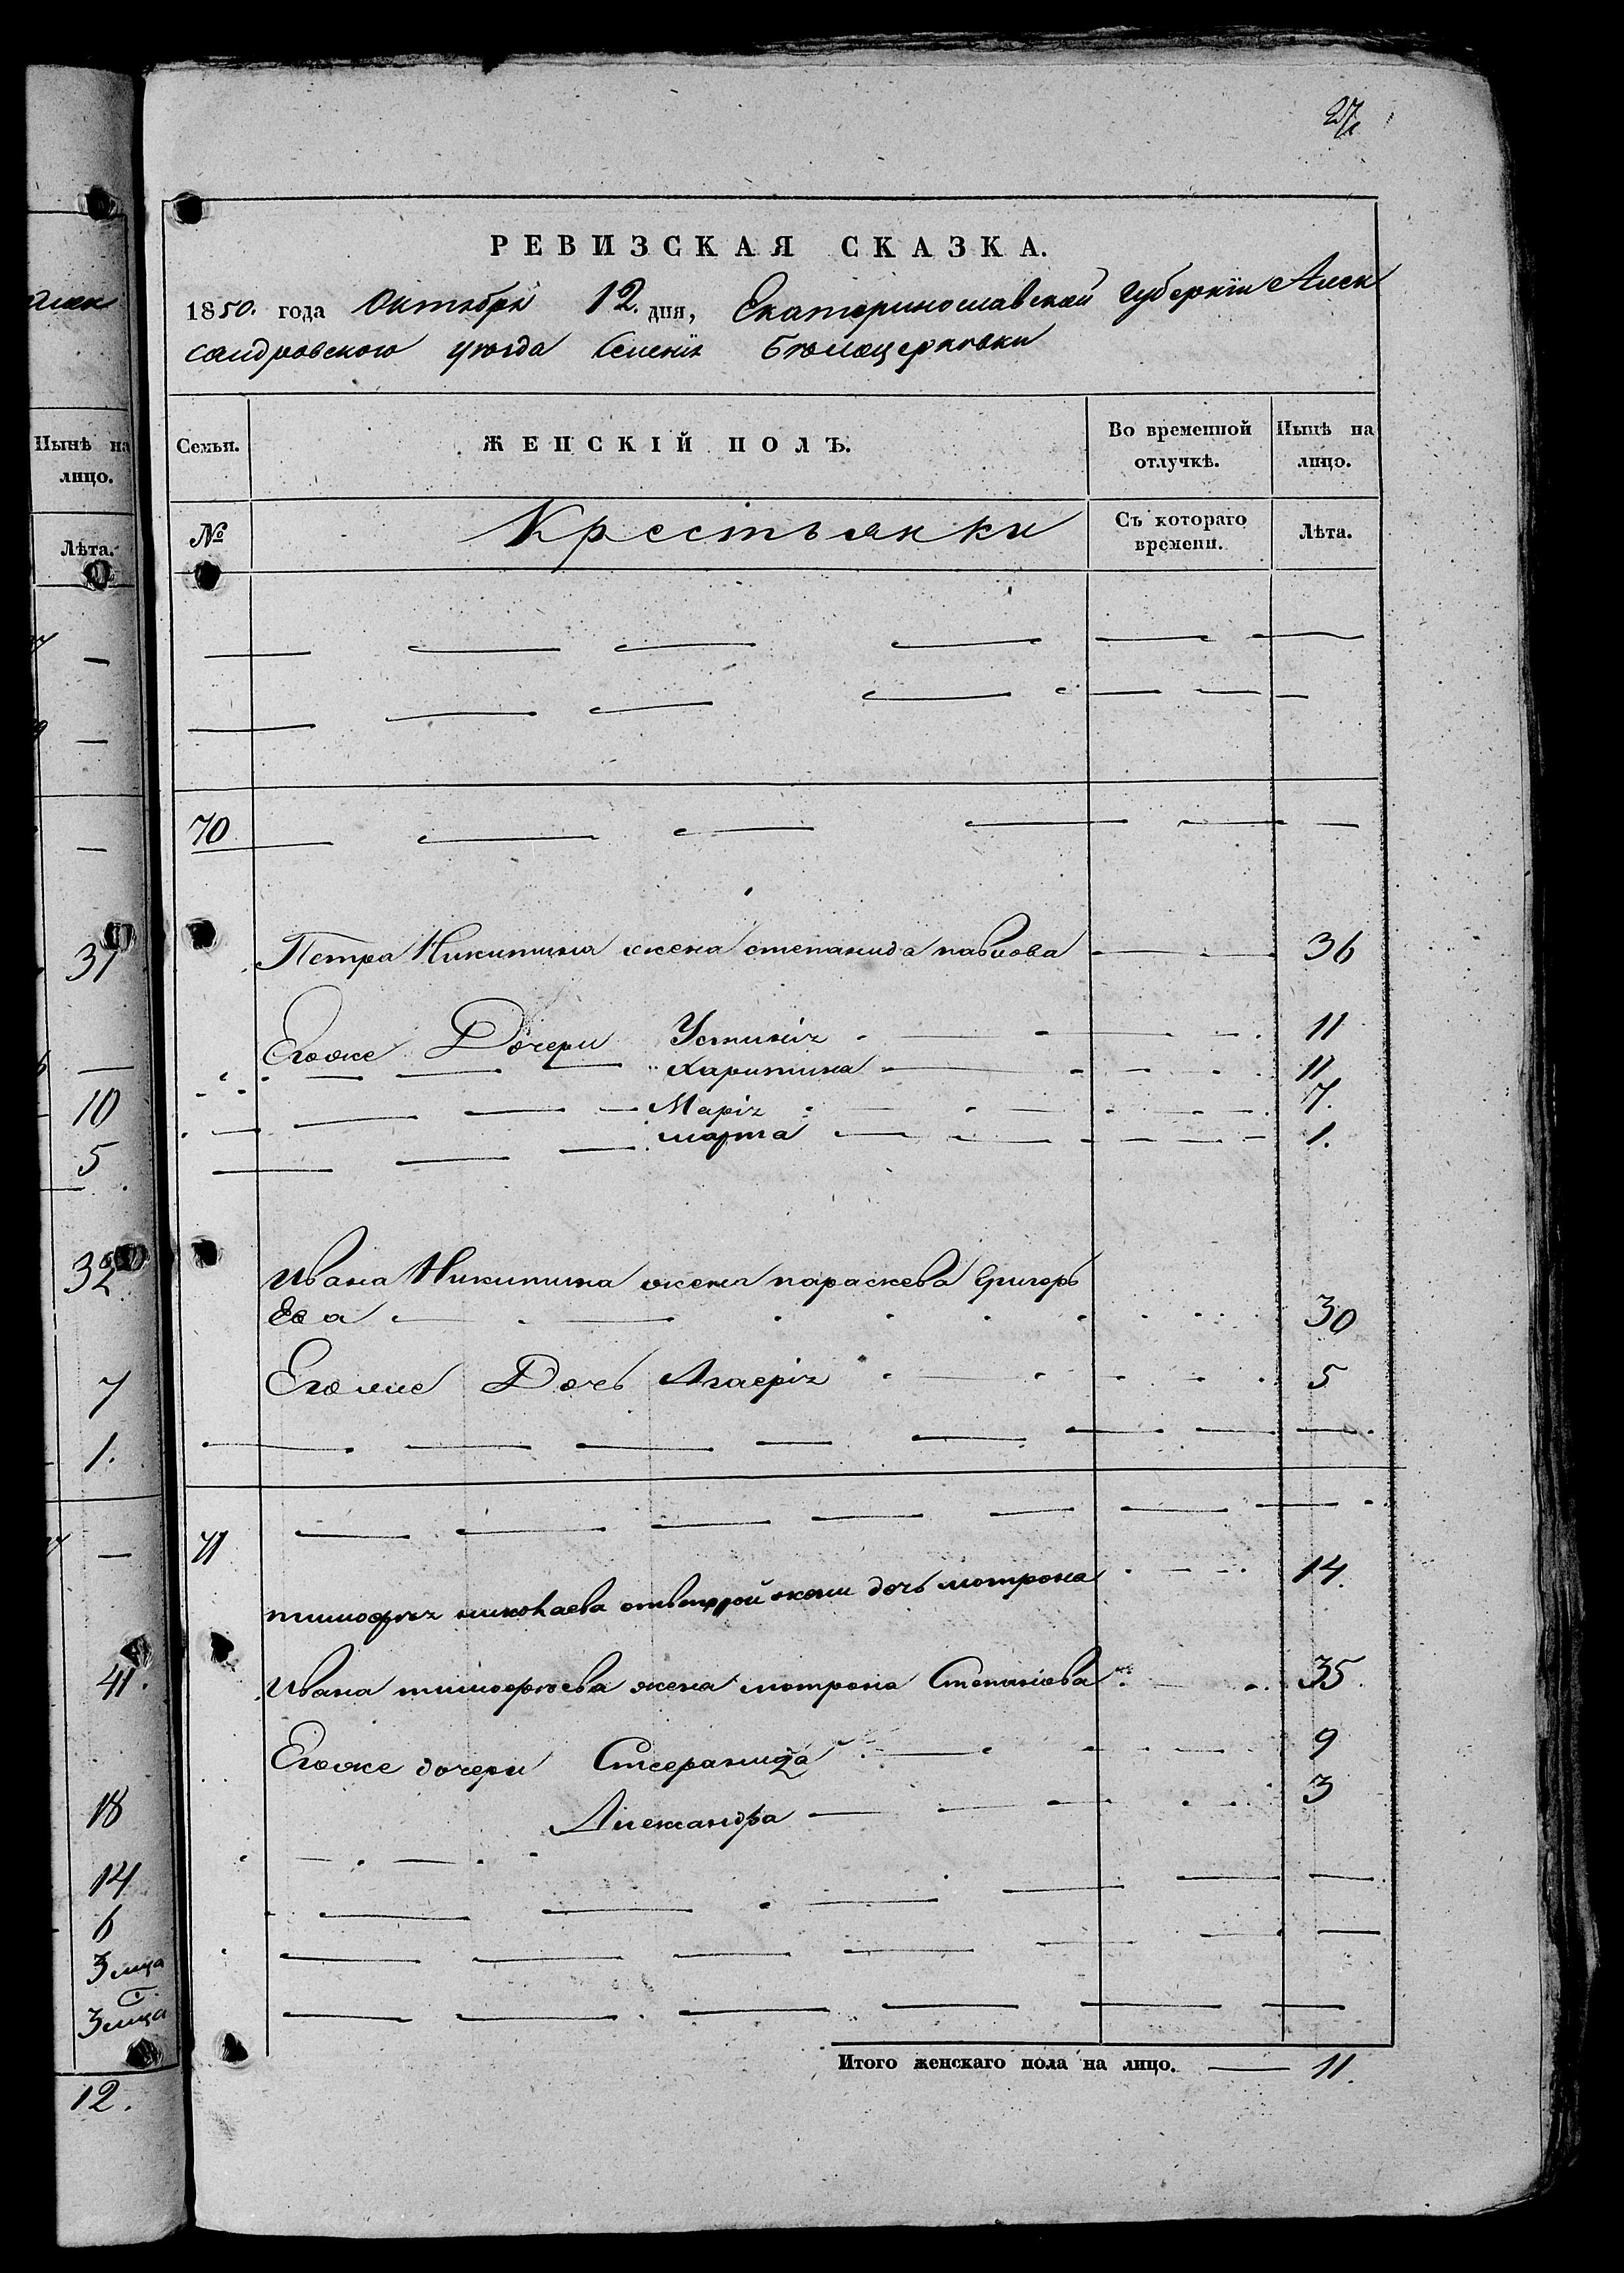 РЕВИЗСКАЯ СКАЗКА.
1850. года Октября 12. дня, Екатеринославской губерніи Алек
сандровского уезда Селенія Бѣлоцерковки
Семьи.
ЖЕНСКІЙ ПОЛЪ.
Во временной отлучкѣ.
Нынѣ на лицо.
№
Крестьянки
Съ котораго времени.
Лѣта.
70
Петра Никитина жена степанида павлова 36
Егоже Дочери Устинія 11
Харитина 11
Марія 7.
марта 1.
Ивана Никитина жена параскева Григорь
Ева 30
Егоже Дочь Агафія 5
71
тимофея николаева отвторой жены дочь мотрона 14.
Ивана тимофеева жена мотрона Степанова 35.
Егоже дочери Стефанида 9
Александра 3
Итого женскаго пола на лицо. 11.
Алек
Нынѣ на
лицо.
Лѣта.
31
10
5
32
7
1.
41.
18
14
6
3 мца
3 мца
12.